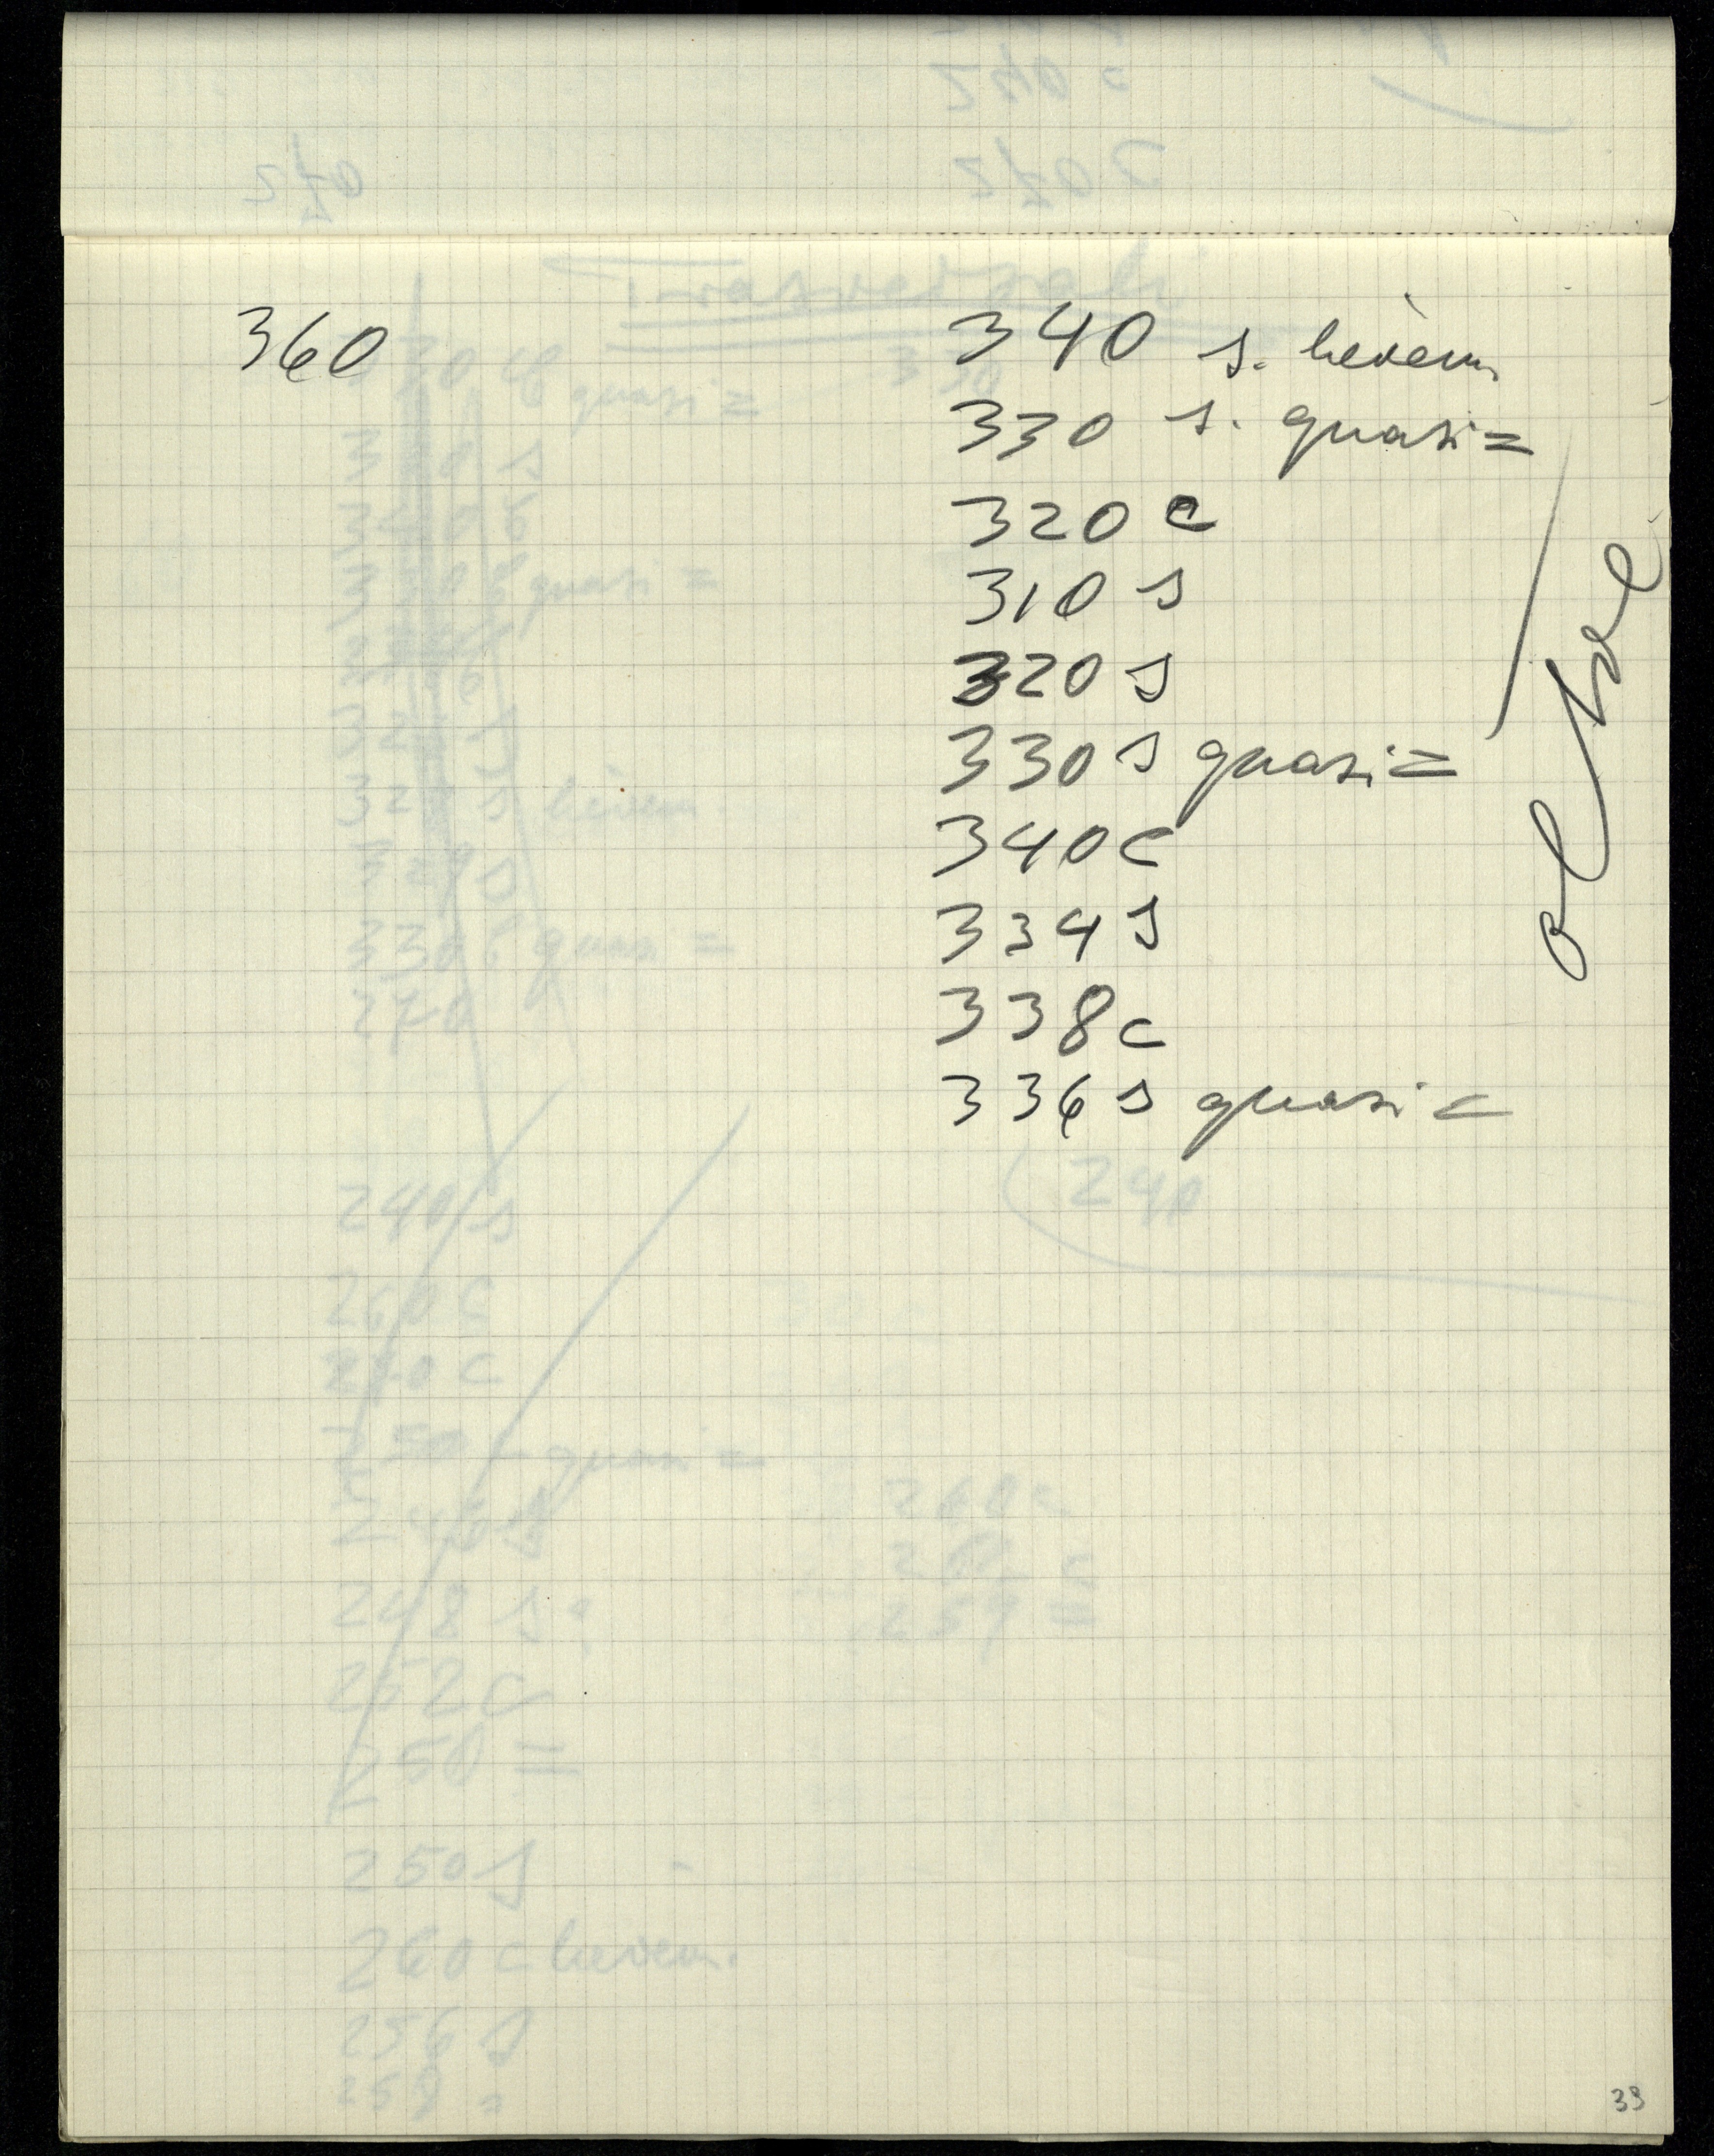 360 340 s. lievem.
330 s. quasi =
320 c
310 s
320 s
330 s quasi =
340 c
334 s
338 c
336 s quasi =
oltre
39